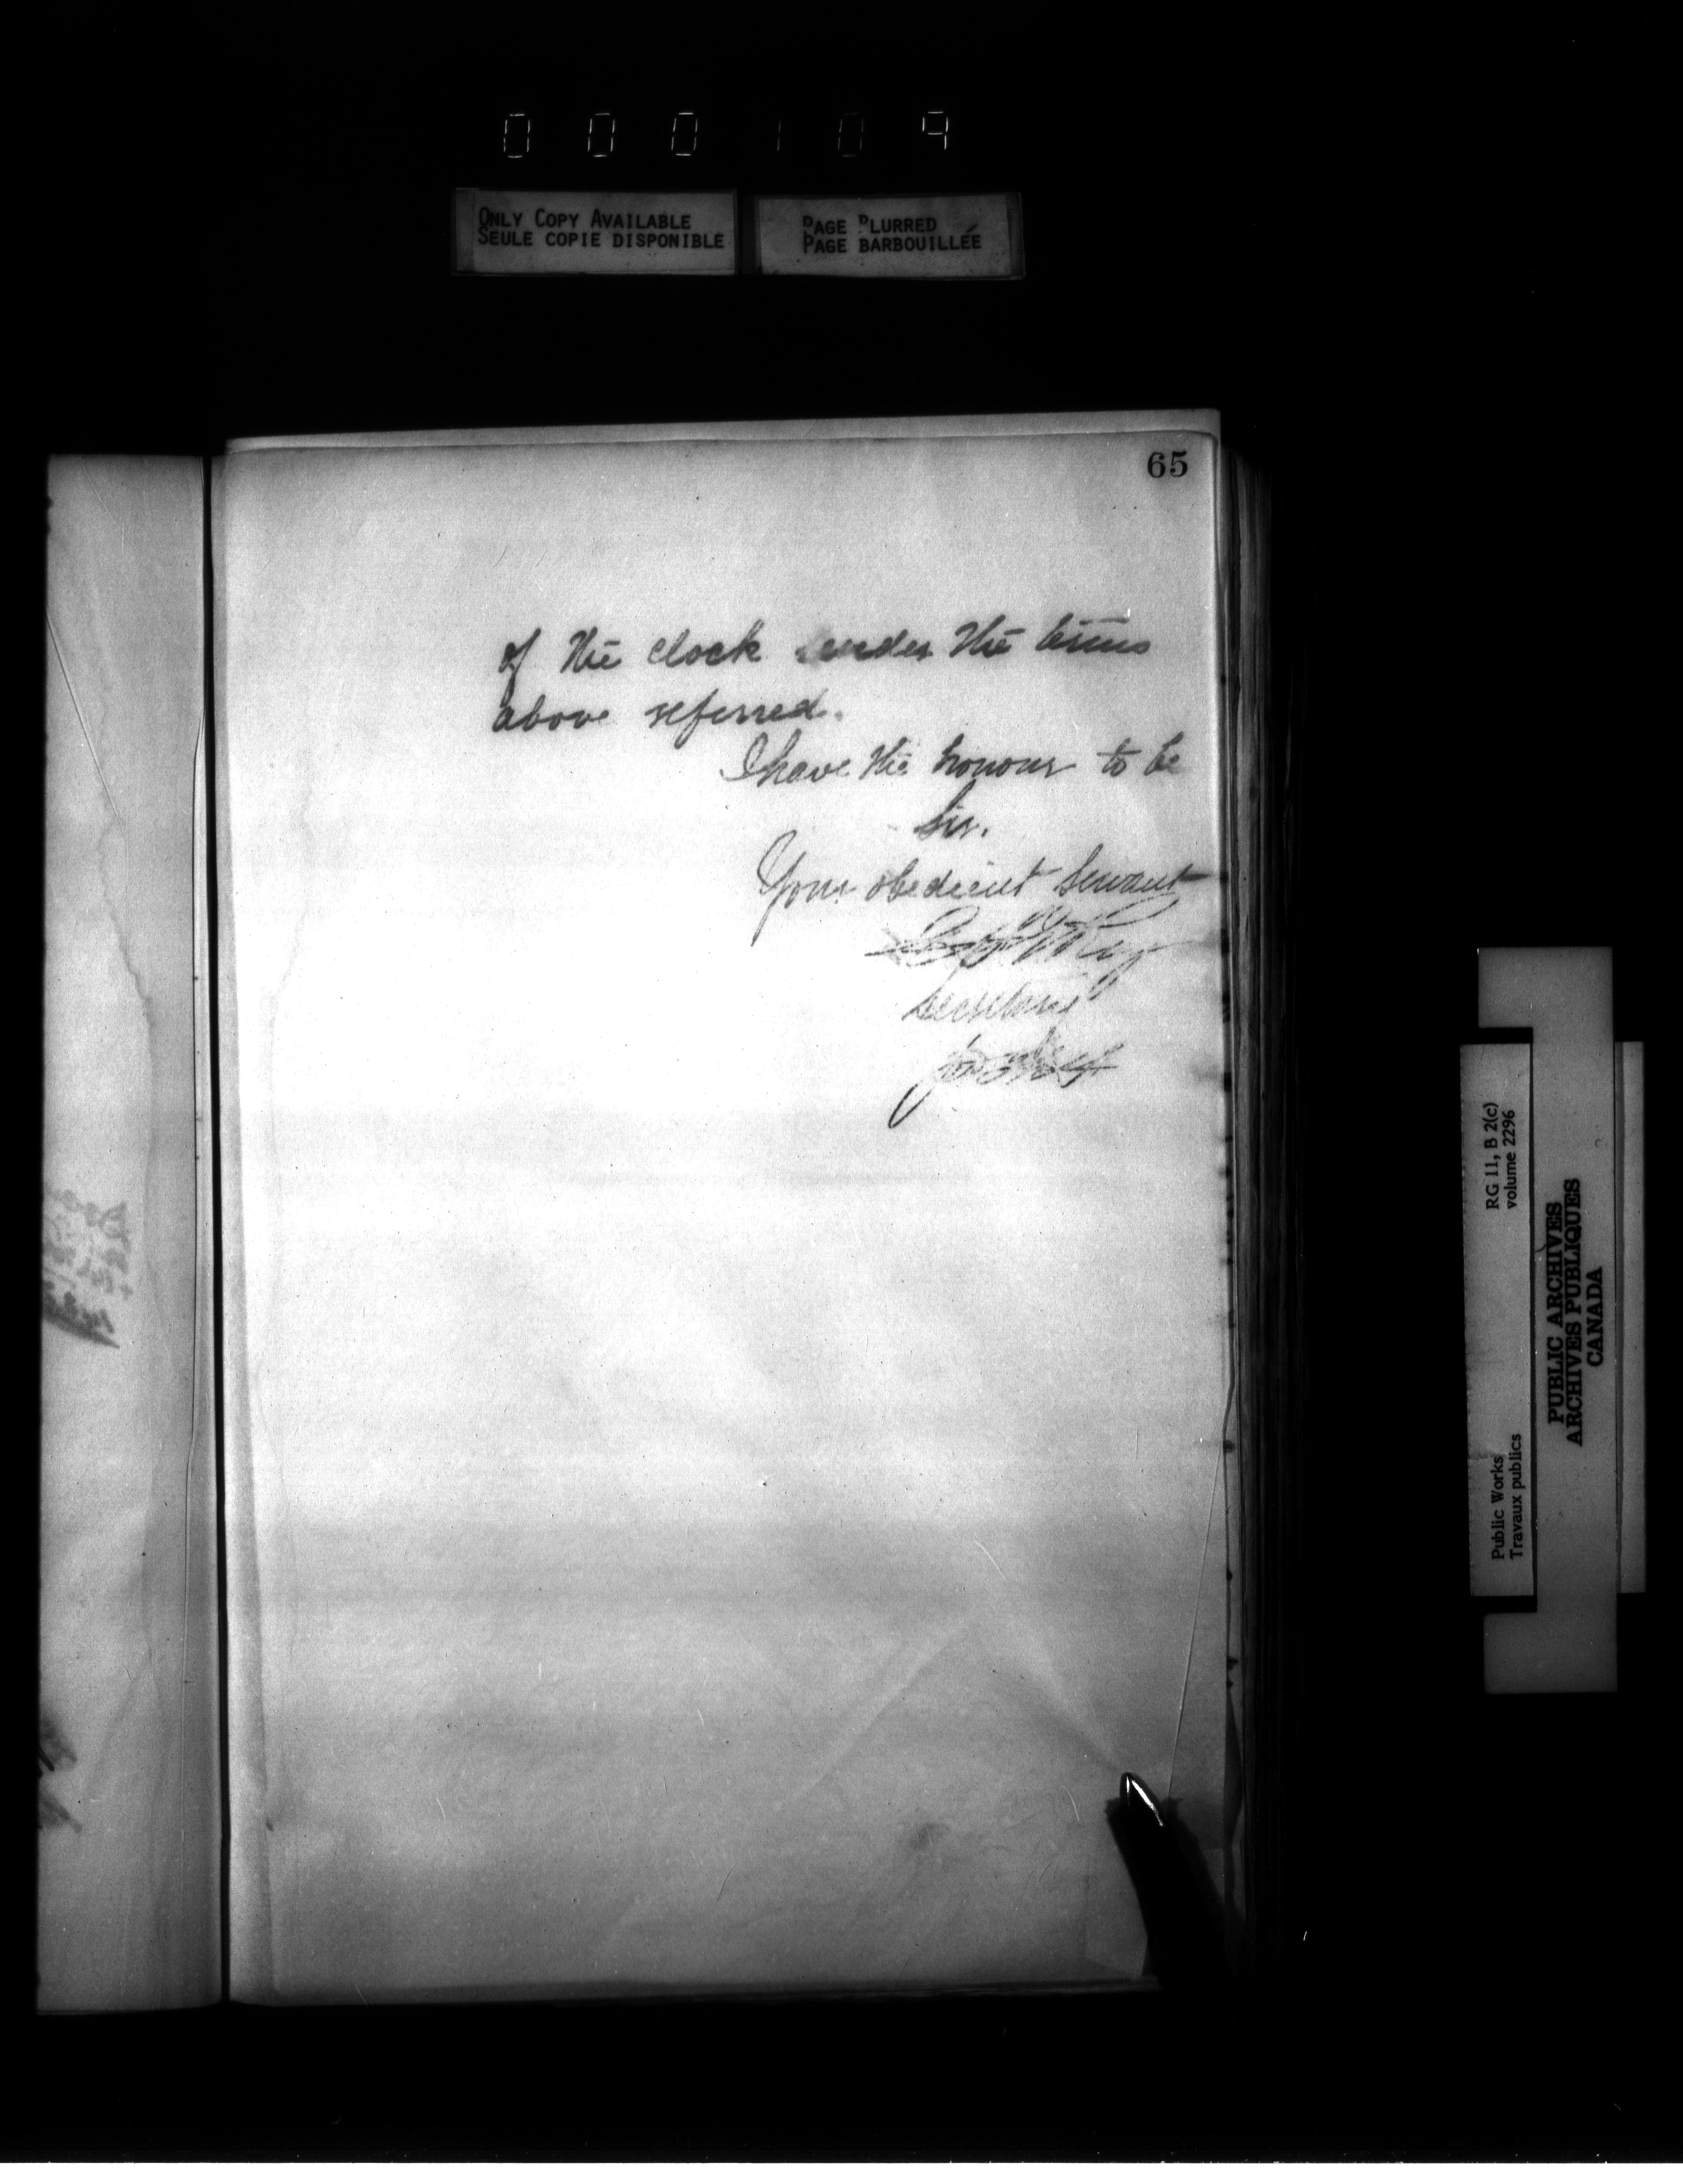 000109
ONLY COPY AVAILABLE
SEULE COPIE DISPONIBLE
PAGE BLURRED
PAGE BARBOUILLÉE
65
of the clock under the terms
above referred.
I have the honour to be
Sir.
Your obedient Servant
Secretary
RG 11, B 2(c)
volume 2296
Public Works
Travaux publics
PUBLIC ARCHIVES
ARCHIVES PUBLIQUES
CANADA